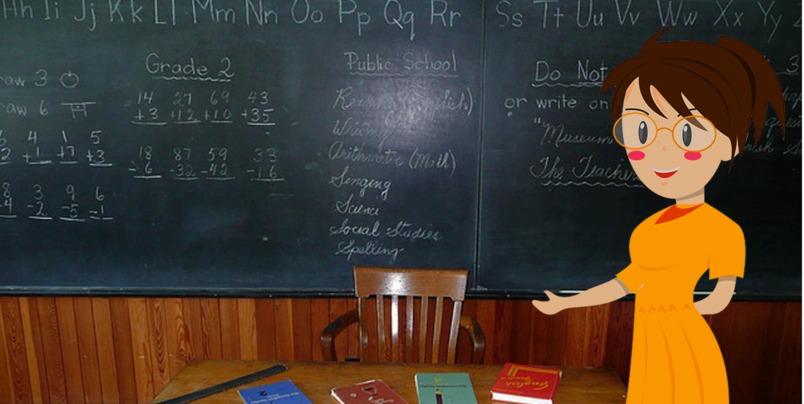 Hh Ii Jj Kk Ll Mm Nn Oo Pp Qq Rr Ss Tt Uu Vv Ww Xx Yy
Grade 2
14 27 69 43
+3 +12 +10 +35
18 87 59 33
-6 -32 -42 -16
4 1 5
+1 +7 +3
8 3 9 6
-4 -2 -5 -1
raw 3
raw 6
Public School
Reading (English)
Writing
Arithmetic (Math)
Singing
Science
Social Studies
Spelling
Do Not
or write on
"Museum
The Teache
English